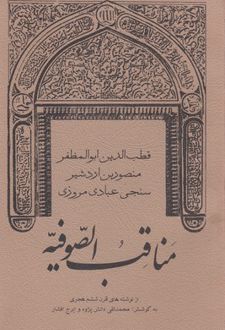 قطب الدین ابوالمظفر
منصور بن اردشیر
سنجی عبادی مروزی
مناقب الصّوفیه
از نوشته های قرن ششم هجری
به کوشش: محمدتقی دانش پژوه و ایرج افشار